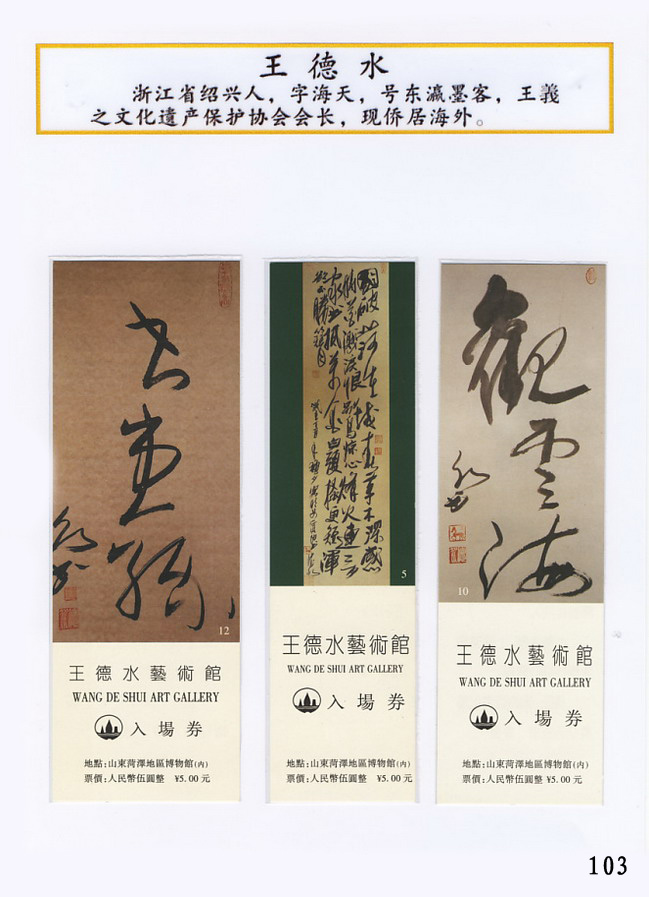 王德水
浙江省绍兴人，字海天，号东瀛墨客，王義
之文化遺产保护协会会长，现侨居海外。
12
王德水藝術館
WANG DE SHUI ART GALLERY
入場券
地點：山東菏澤地區博物館(内)
票價：人民幣伍圓整 ¥5.00元
國破山河在城春草木深感
時花濺淚恨別鳥驚心烽火連三
家書抵萬金白頭搔更短渾
欲不勝簪月
5
王德水藝術館
WANG DE SHUI ART GALLERY
入場券
地點：山東菏澤地區博物館(内)
票價：人民幣伍圓整 ¥5.00元
觀雲海
10
王德水藝術館
WANG DE SHUI ART GALLERY
入場券
地點：山東菏澤地區博物館(内)
票價：人民幣伍圓整 ¥5.00元
103